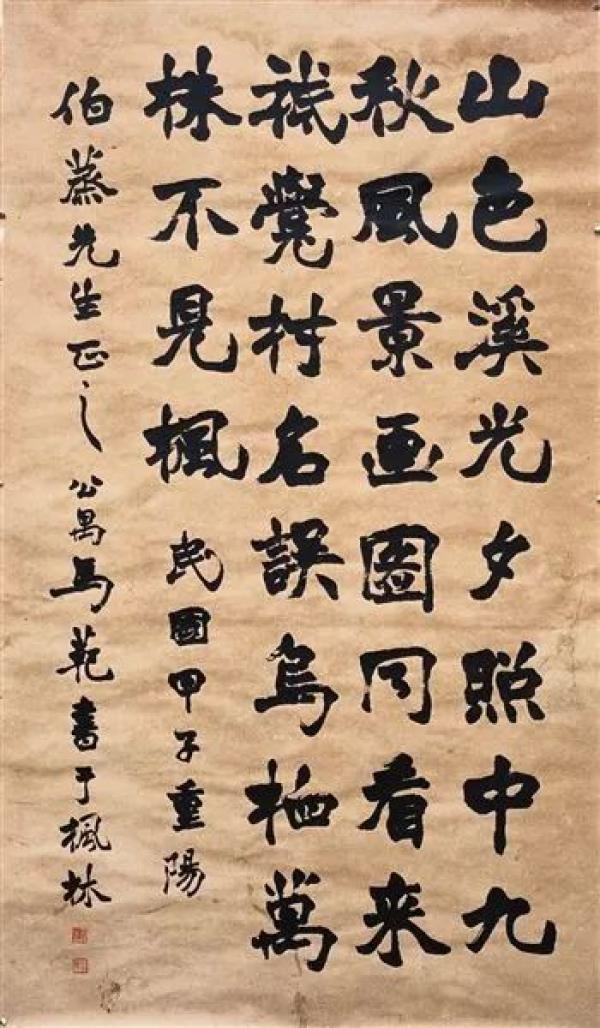 山色溪光夕照中九
秋風景画圖同看来
祗覺村名誤烏桕萬
株不見楓
民國甲子重陽
伯蒸先生正之 公禺馬範書于楓林